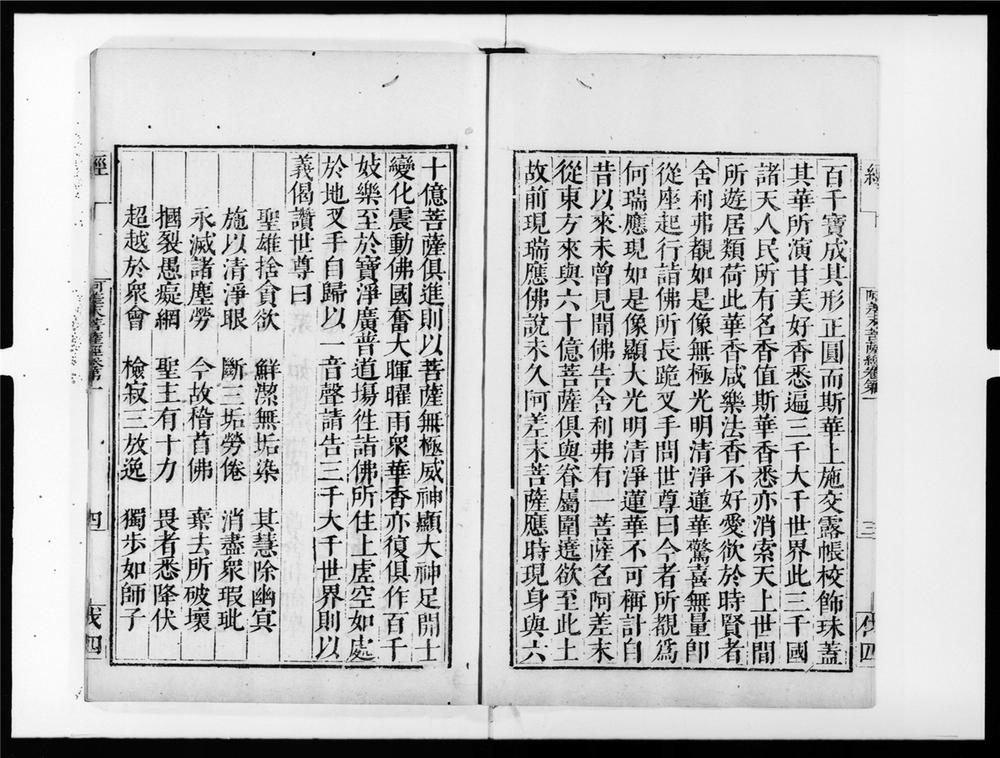 百千寶成其形正圓而斯華上施交露帳校飾珠蓋
其華所演甘美好香悉遍三千大千世界此三千國
諸天人民所有名香值斯華香悉亦消索天上世間
所遊居類荷此華香咸樂法香不好愛欲於時賢者
舍利弗覩如是像無極光明清淨蓮華驚喜無量卽
從座起行詣佛所長跪叉手問世尊曰今者所覩爲
何瑞應現如是像顯大光明清淨蓮華不可稱計自
昔以來未曾見聞佛告舍利弗有一菩薩名阿差末
從東方來與六十億菩薩俱與眷屬圍遶欲至此土
故前現瑞應佛說未久阿差末菩薩應時現身與六
三
十億菩薩俱進則以菩薩無極威神顯大神足開士
變化震動佛國奮大暉曜雨衆華香亦復俱作百千
妓樂至於寶淨廣普道場徃詣佛所住上虛空如處
於地叉手自歸以一音聲請告三千大千世界則以
義偈讚世尊曰
聖雄捨貪欲 鮮潔無垢染 其慧除幽冥
施以清淨眼 斷三垢勞倦 消盡衆瑕玼
永滅諸塵勞 今故稽首佛 棄去所破壞
摑裂愚癡網 聖主有十力 畏者悉降伏
超越於衆會 檢寂三放逸 獨步如師子
經
阿差末菩薩經卷第一
四